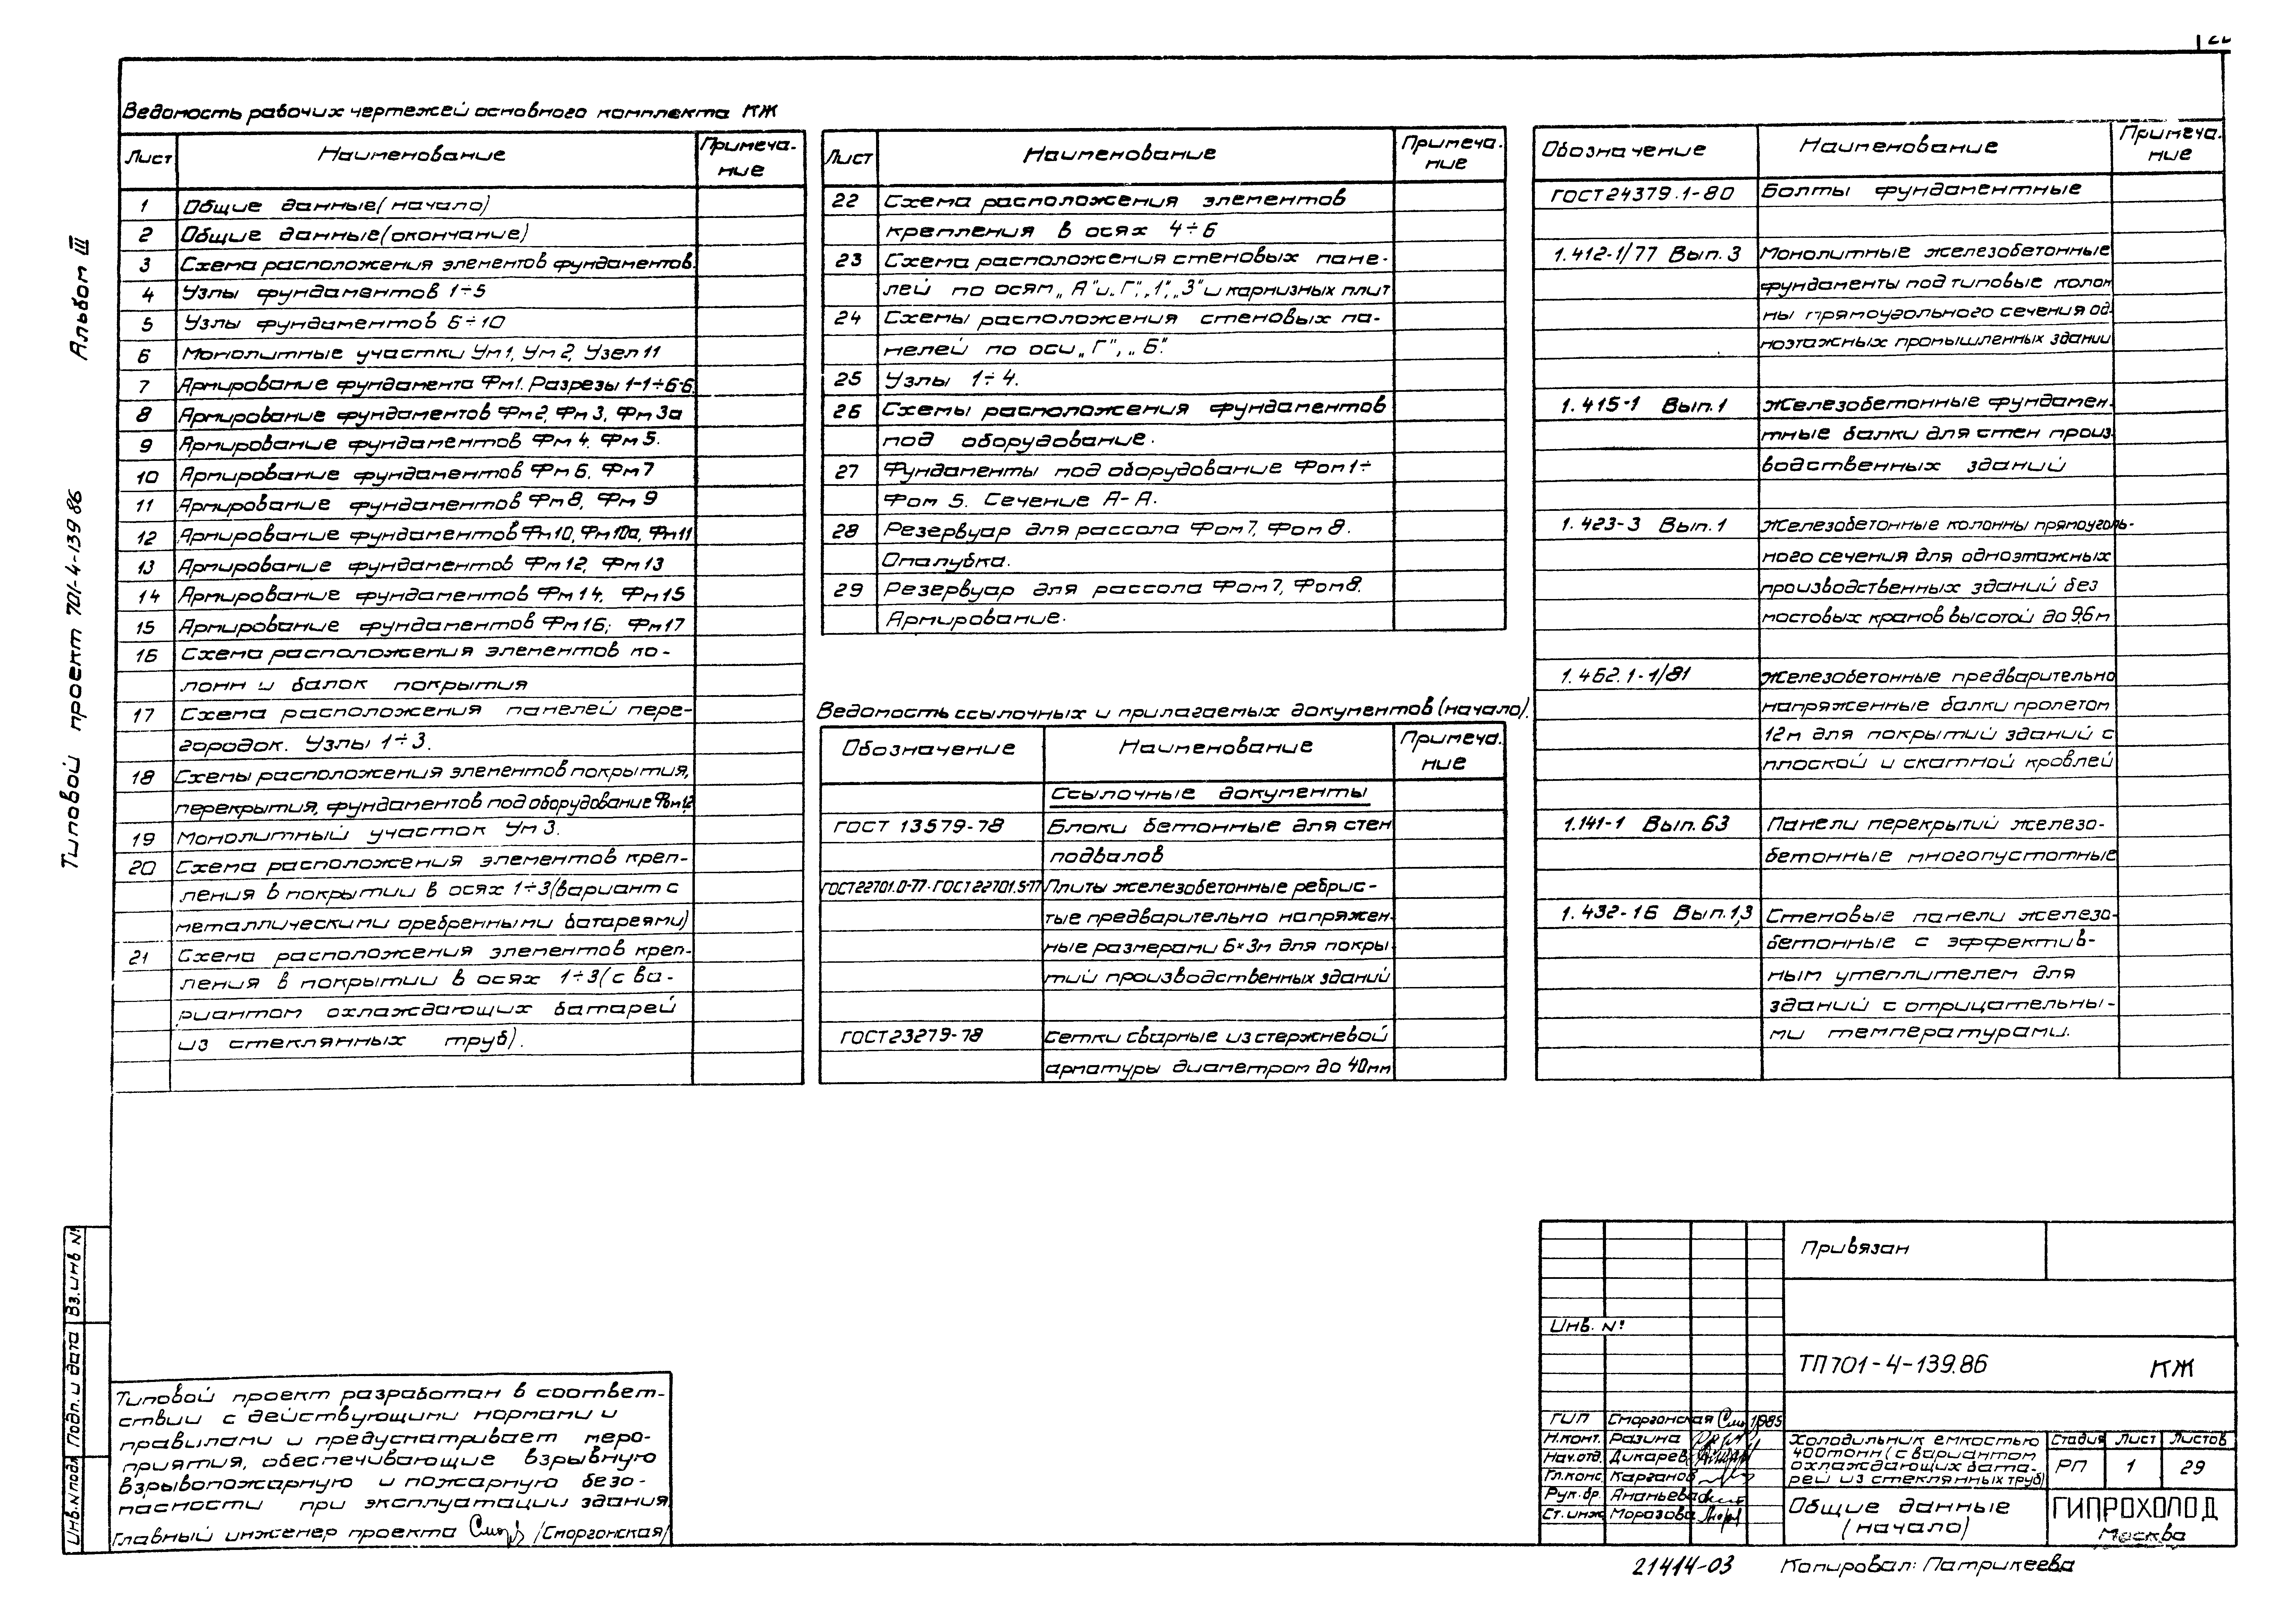 Альбом III
Типовой проект 701-4-139 86
Ведомость рабочих чертежей основного комплекта КЖ
Лист Наименование Примеча-
ние
1 Общие данные (начало)
2 Общие данные (окончание)
3 Схема расположения элементов фундаментов.
4 Узлы фундаментов 1÷5
5 Узлы фундаментов 6÷10
6 Монолитные участки Ум1, Ум 2, Узел 11
7 Армирование фундамента Фм1. Разрезы 1-1÷6-6.
8 Армирование фундаментов Фм 2, Фм 3, Фм 3а
9 Армирование фундаментов Фм 4, Фм 5.
10 Армирование фундаментов Фм 6, Фм 7
11 Армирование фундаментов Фм 8, Фм 9
12 Армирование фундаментов Фм 10, Фм 10а, Фм 11
13 Армирование фундаментов Фм 12, Фм 13
14 Армирование фундаментов Фм 14, Фм 15
15 Армирование фундаментов Фм 16; Фм 17
16 Схема расположения элементов ко-
лонн и балок покрытия
17 Схема расположения панелей пере-
городок. Узлы 1÷3.
18 Схемы расположения элементов покрытия,
перекрытия, фундаментов под оборудование Фом1,2
19 Монолитный участок Ум 3.
20 Схема расположения элементов креп-
ления в покрытии в осях 1÷3 (вариант с
металлическими оребренными батареями)
21 Схема расположения элементов креп-
ления в покрытии в осях 1÷3 (с ва-
риантом охлаждающих батарей
из стеклянных труб).
Лист Наименование Примеча.
ние
22 Схема расположения элементов
крепления в осях 4÷6
23 Схема расположения стеновых пане-
лей по осям „А" и „Г", „1", „3" и карнизных плит
24 Схемы расположения стеновых па-
нелей по оси „Г", „Б".
25 Узлы 1÷4.
26 Схемы расположения фундаментов
под оборудование.
27 Фундаменты под оборудование Фом 1÷
Фом 5. Сечение А-А.
28 Резервуар для рассола Фом 7, Фом 8.
Опалубка.
29 Резервуар для рассола Фом 7, Фом 8.
Армирование.
Ведомость ссылочных и прилагаемых документов (начало).
Обозначение Наименование Примеча.
ние
Ссылочные документы
ГОСТ 13579-78 Блоки бетонные для стен
подвалов
ГОСТ 22701.0-77÷ГОСТ 22701.5-77 Плиты железобетонные ребрис-
тые предварительно напряжен-
ные размерами 6×3м для покры
тий производственных зданий
ГОСТ 23279-78 Сетки сварные из стержневой
арматуры диаметром до 40мм
Обозначение Наименование Примеча.
ние
ГОСТ 24379.1-80 Болты фундаментные
1.412-1/77 Вып. 3 Монолитные железобетонные
фундаменты под типовые колон
ны прямоугольного сечения од.
ноэтажных промышленных здании
1.415-1 Вып. 1 Железобетонные фундамен.
тные балки для стен произ.
водственных зданий
1.423-3 Вып. 1 Железобетонные колонны прямоуголь-
ного сечения для одноэтажных
производственных зданий без
мостовых кранов высотой до 9,6м
1.462.1-1/81 Железобетонные предварительно
напряженные балки пролетом
12м для покрытий зданий с
плоской и скатной кровлей
1.141-1 Вып. 63 Панели перекрытий железо-
бетонные многопустотные
1.432-16 Вып. 1,3 Стеновые панели железо-
бетонные с эффектив-
ным утеплителем для
зданий с отрицательны-
ми температурами.
Вз. инв №
Подп. и дата
Инв. № подл
Типовой проект разработан в соответ-
ствии с действующими нормами и
правилами и предусматривает меро-
приятия, обеспечивающие взрывную
взрывопожарную и пожарную безо-
пасности при эксплуатации здания
Главный инженер проекта /Сморгонская/
Привязан
Инв. №
ТП 701-4-139.86 КЖ
ГИП Сморгонская 1985
Н.конт. Разина
Нач.отд. Дикарев
Гл.конс Карганов
Рук.бр Ананьева
Ст.инж Морозова
Холодильник емкостью
400тонн (с вариантом
охлаждающих бата-
рей из стеклянных труб)
Стадия Лист Листов
РП 1 29
Общие данные
(начало)
ГИПРОХОЛОД
Москва
21414-03 Копировал: Патрикеева